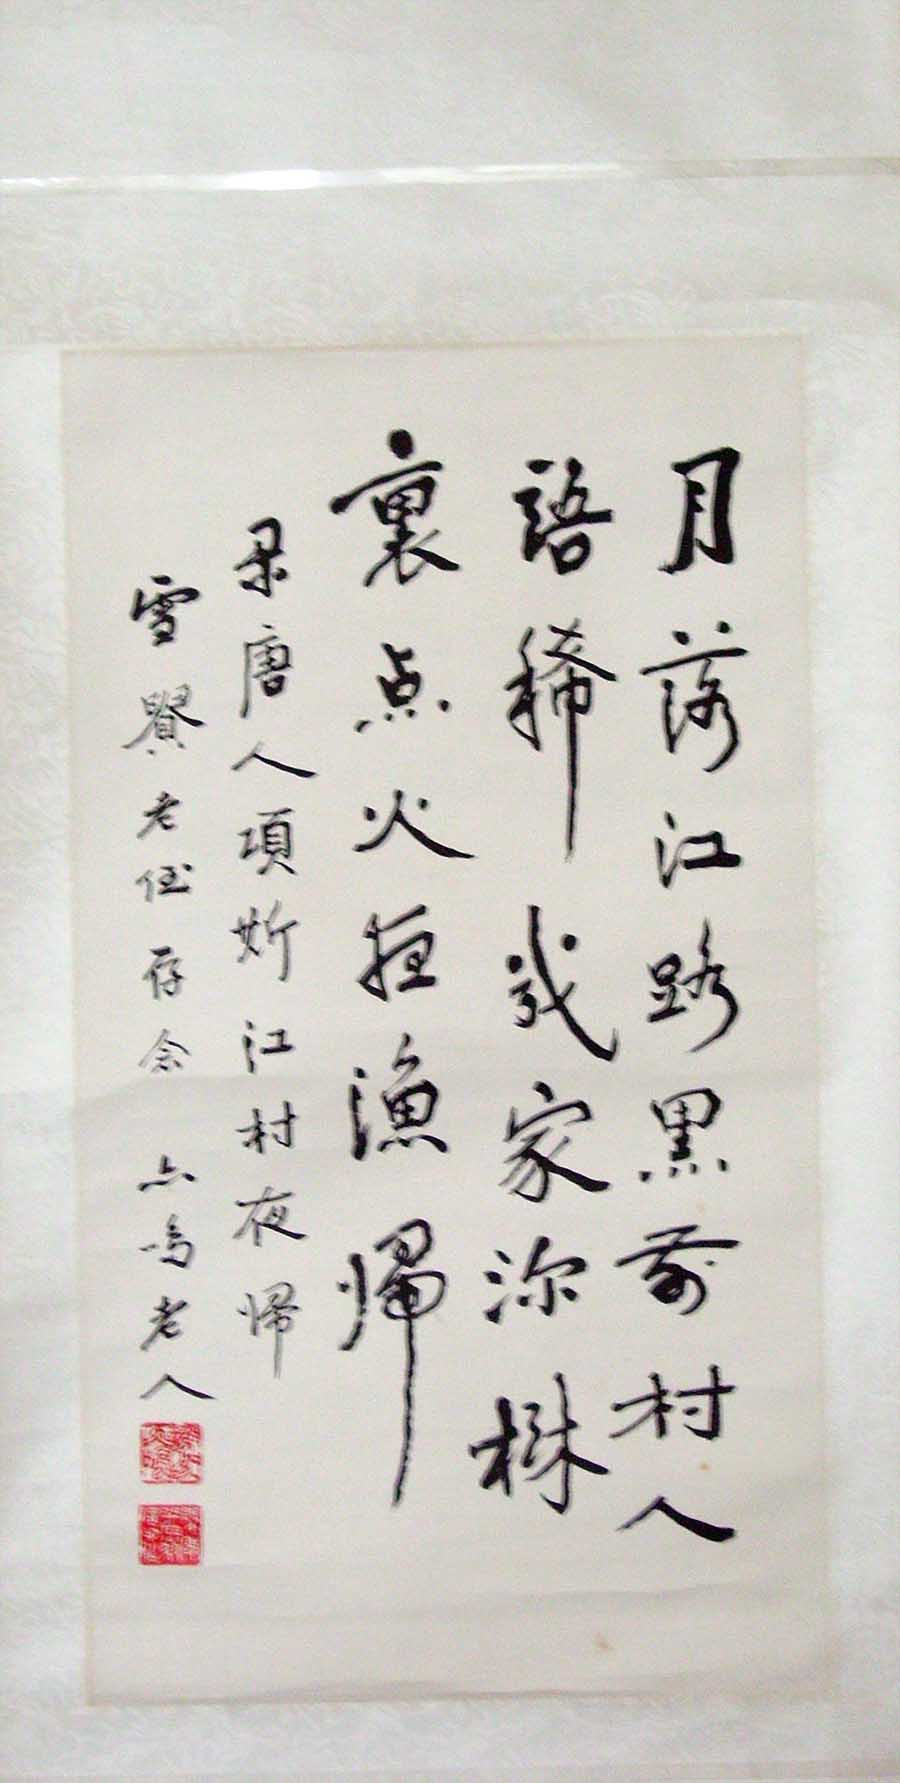 月落江路黑前村人
語稀幾家深樹
裏点火夜漁帰
录唐人項斯江村夜帰
雪賢老侄存念 鳴老人